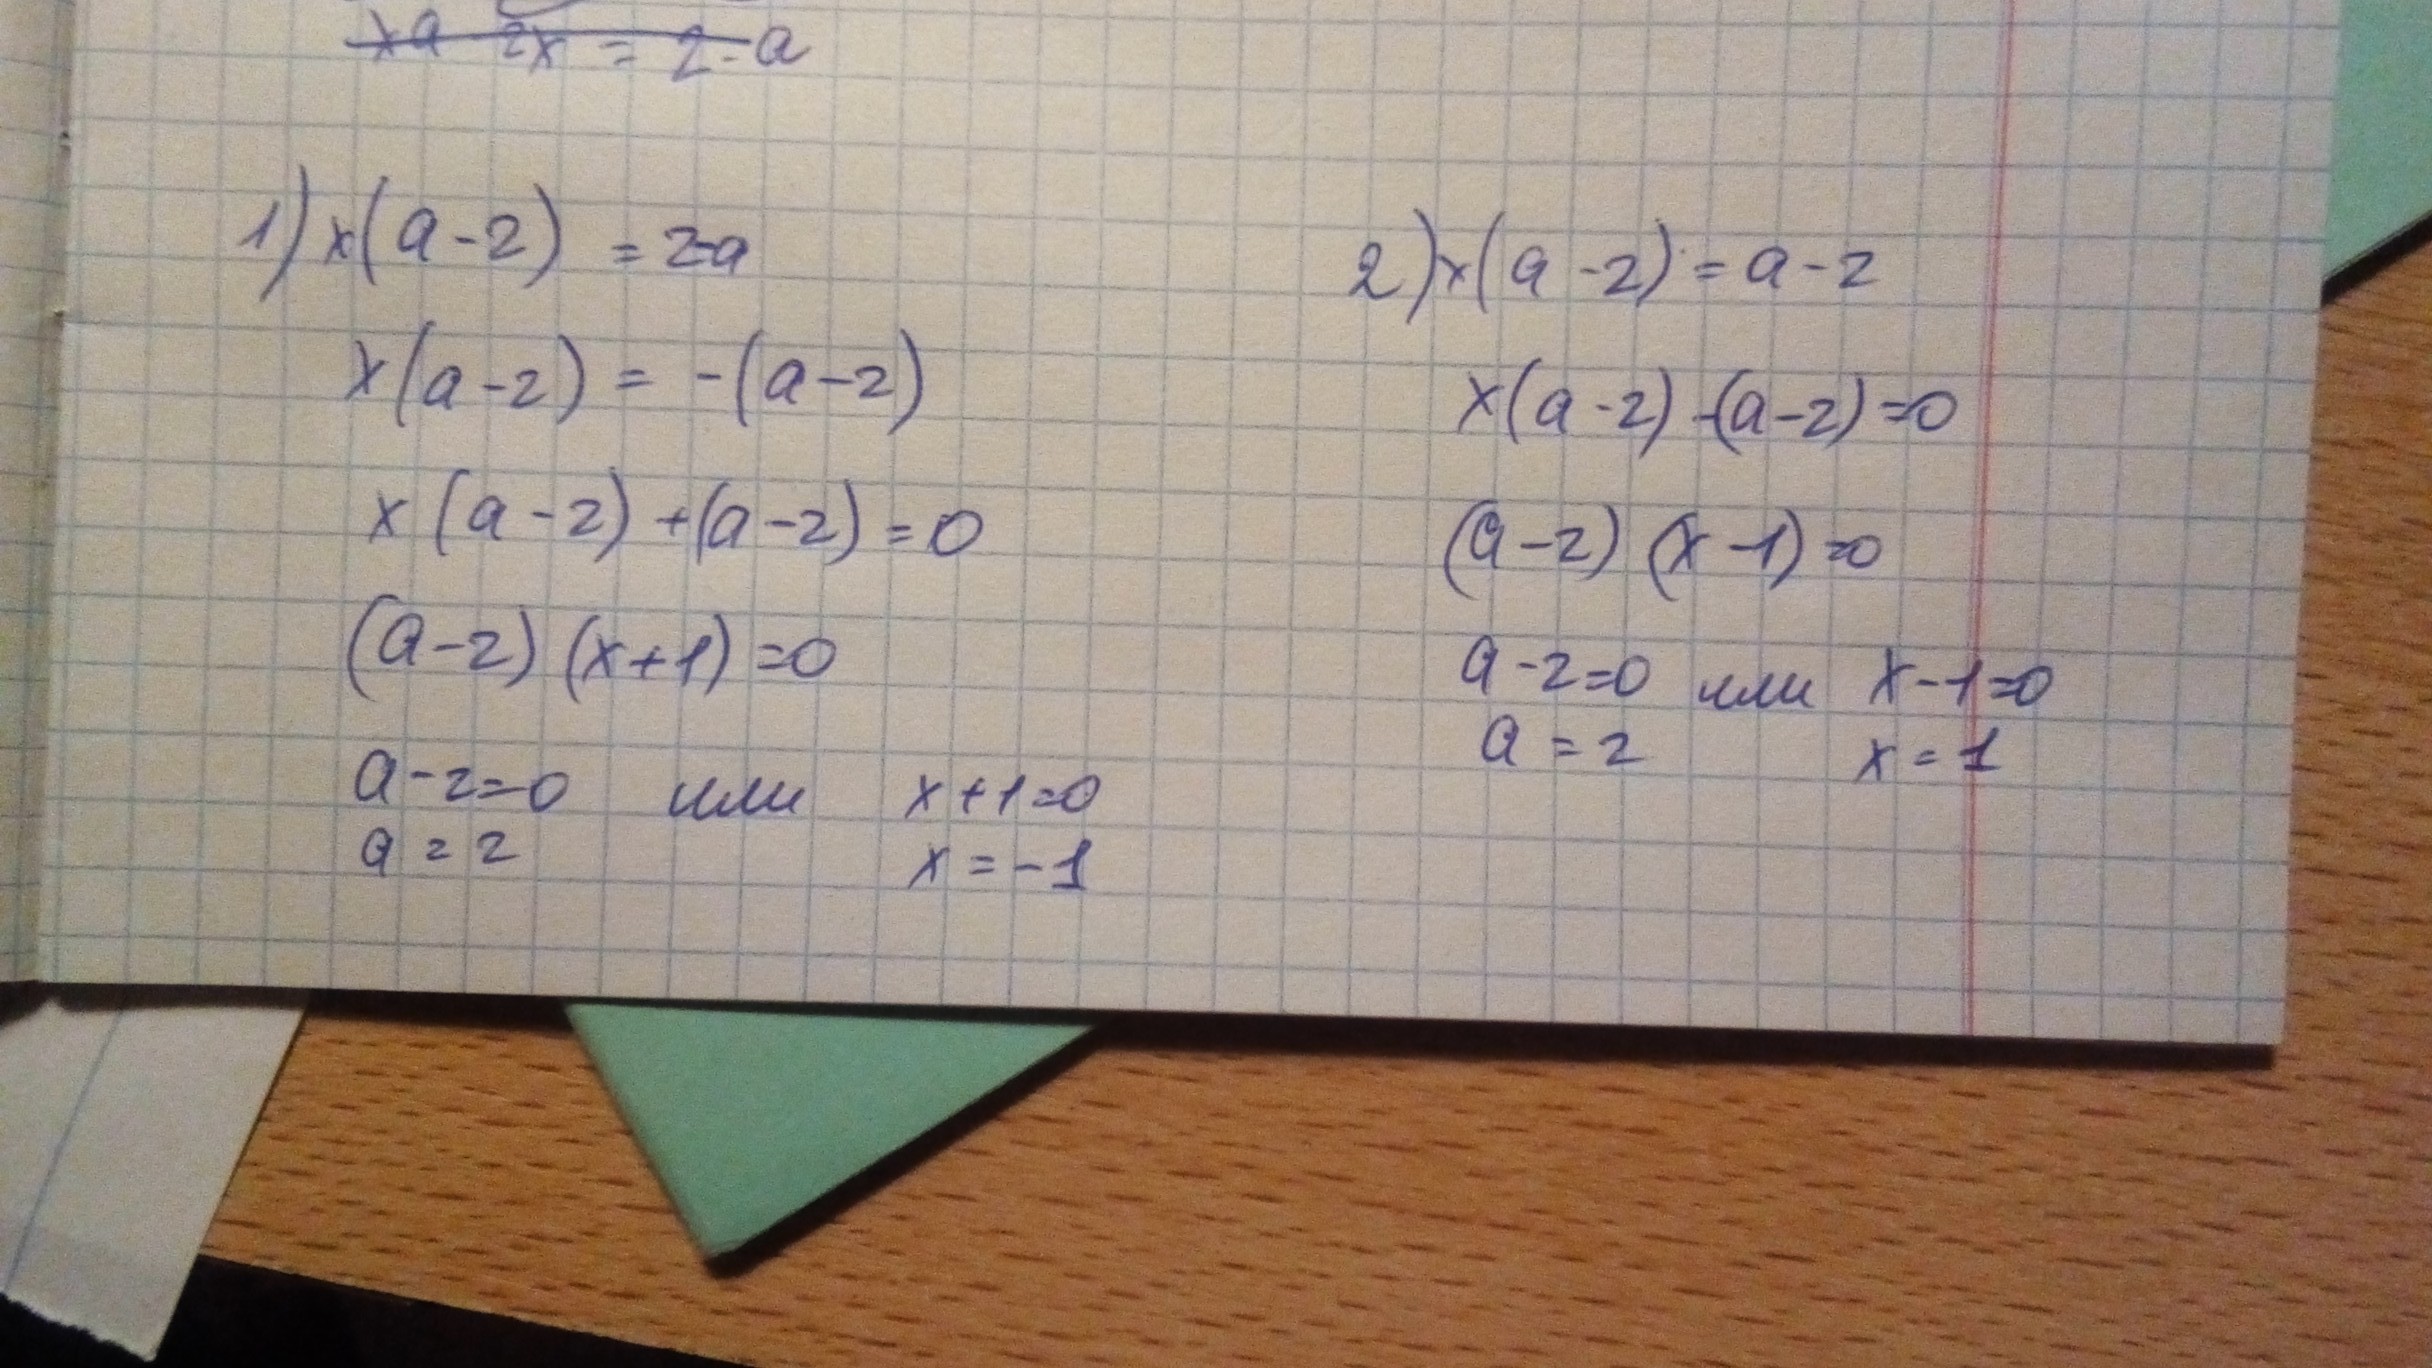 xa 2x = 2-a
1) x(a-2) = 2-a
x(a-2) = -(a-2)
x(a-2)+(a-2)=0
(a-2)(x+1)=0
a-2=0 или x+1=0
a=2 x=-1
2) x(a-2)=a-2
x(a-2)-(a-2)=0
(a-2)(x-1)=0
a-2=0 или x-1=0
a=2 x=1